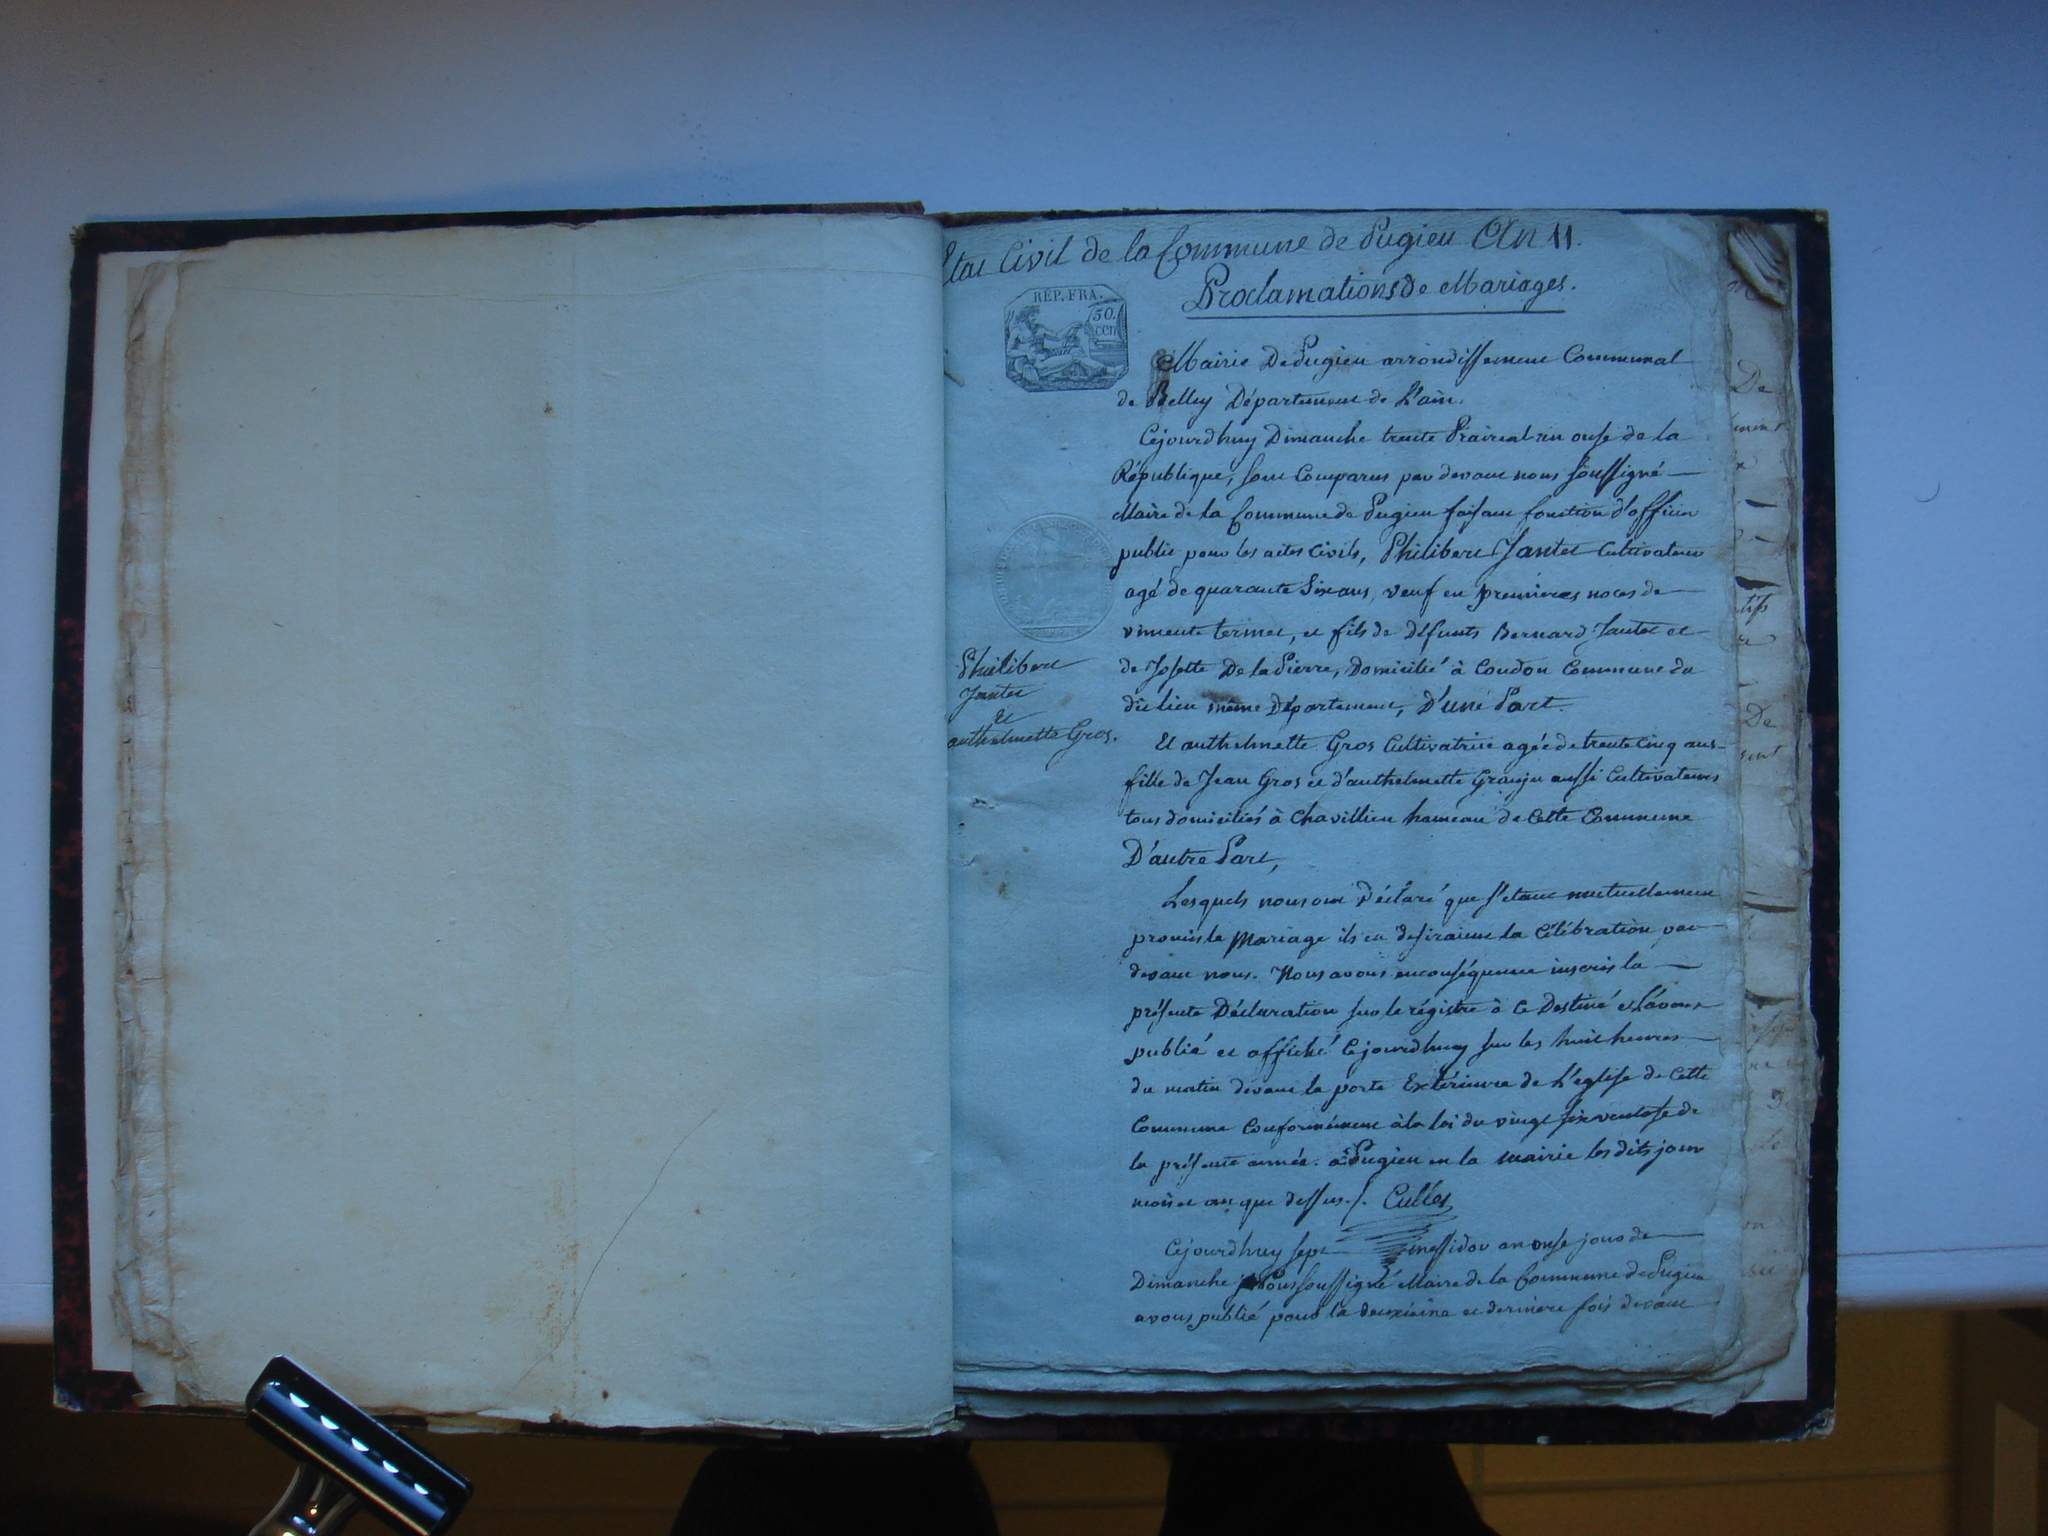 Etat Civil de la Commune de Pugieu An 11.
Proclamations de Mariages.
RÉP. FRA.
50.
cen
Mairie De Pugieu arrondissement Communal
de Belley Département de L'ain.
Cejourdhuy Dimanche trente Prairial an onse de la
République, sont Comparus par devant nous soussigné
Maire de la Commune de Pugieu faisant fonction d'officier
public pour les actes Civils, Philibert Jantet Cultivateur
agé de quarante Six ans, veuf en premieres noces de
vincente termet, et fils de défunts Bernard Jantet et
de Josette De la Pierre, Domicilié à Coudon Commune du
dit lieu même Département, D'une Part.
Philibert
Jantet
et
anthelmette Gros.
Et anthelmette Gros Cultivatrice agée de trente Cinq ans
fille de Jean Gros et d'anthelmette Granju aussi Cultivateurs
tous domiciliés à Chavillieu hameau de Cette Commune
D'autre Part,
Lesquels nous ont Déclaré que s'etant mutuellement
promis le Mariage ils en desiraient la Célébration par
devant nous. Nous avons enconséquence inscris la
présente Déclaration sur le régistre à ce Destiné et l'avons
publié et affiché Cejourdhuy sur les huit heures
du matin devant la porte Extérieure de L'eglise de Cette
Commune Conformément à la loi du vingt six ventose de
la présente année. à Pugieu en la mairie les dits jour
mois et an que dessus./. Cullet
Cejourdhuy sept messidor an onse jour de
Dimanche Nous soussigné Maire de la Commune de Pugieu
avons publié pour la deuxième et derniere fois devant